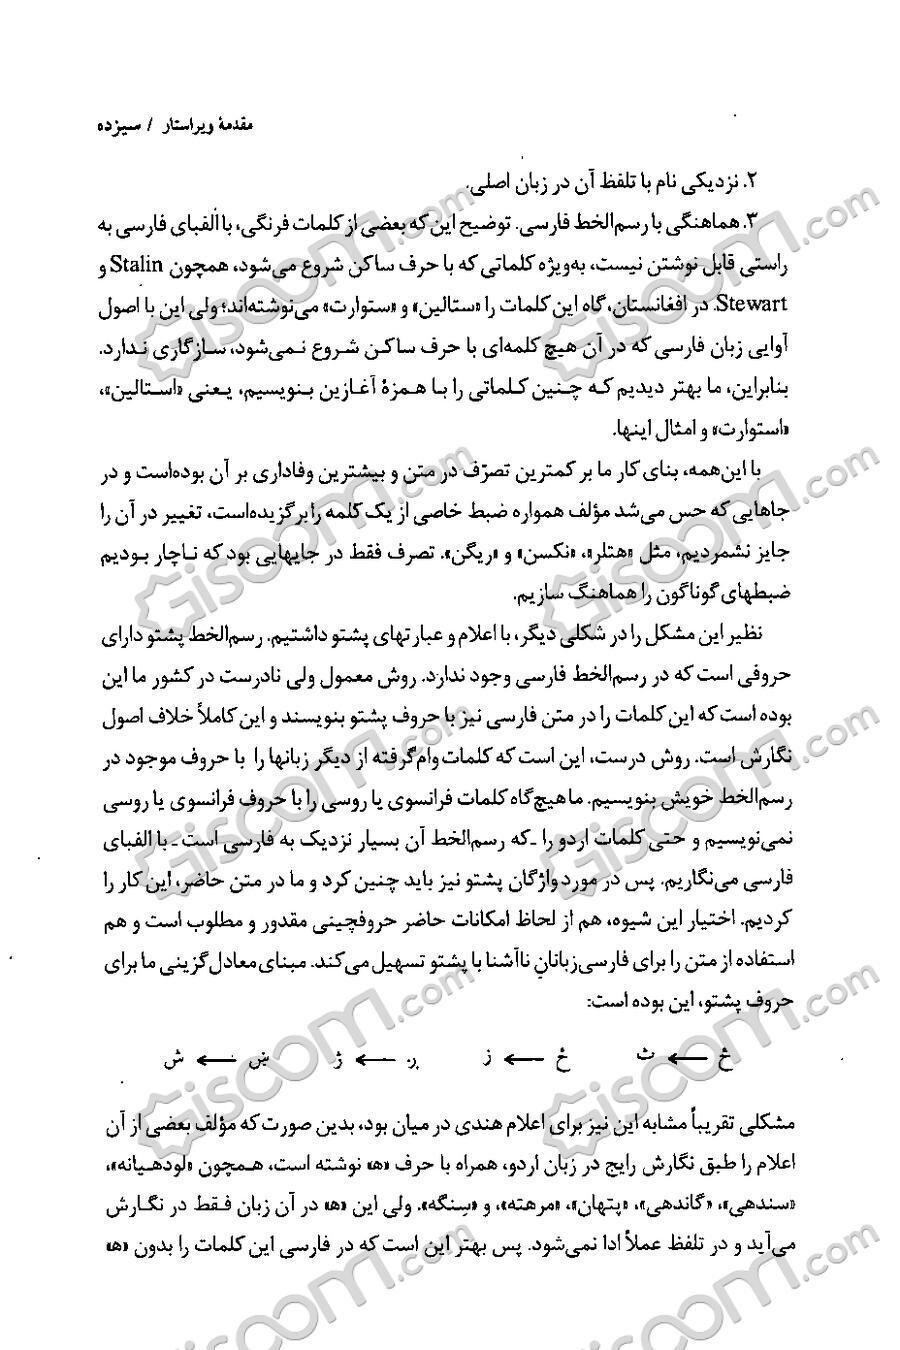 مقدمهٔ ویراستار / سیزده
۲. نزدیکی نام با تلفظ آن در زبان اصلی.
۳. هماهنگی با رسم‌الخط فارسی. توضیح این‌که بعضی از کلمات فرنگی، با الفبای فارسی به
راستی قابل نوشتن نیست، به‌ویژه کلماتی که با حرف ساکن شروع می‌شود، همچون Stalin و
Stewart. در افغانستان، گاه این کلمات را «ستالین» و «ستوارت» می‌نوشته‌اند؛ ولی این با اصول
آوایی زبان فارسی که در آن هیچ کلمه‌ای با حرف ساکن شروع نمی‌شود، سازگاری ندارد.
بنابراین، ما بهتر دیدیم که چنین کلماتی را با همزهٔ آغازین بنویسیم، یعنی «استالین»،
«استوارت» و امثال اینها.
با این‌همه، بنای کار ما بر کمترین تصرّف در متن و بیشترین وفاداری بر آن بوده‌است و در
جاهایی که حس می‌شد مؤلف همواره ضبط خاصی از یک کلمه را برگزیده‌است، تغییر در آن را
جایز نشمردیم، مثل «هتلر»، «نکسن» و «ریگن». تصرف فقط در جایهایی بود که ناچار بودیم
ضبطهای گوناگون را هماهنگ سازیم.
نظیر این مشکل را در شکلی دیگر، با اعلام و عبارتهای پشتو داشتیم. رسم‌الخط پشتو دارای
حروفی است که در رسم‌الخط فارسی وجود ندارد. روش معمول ولی نادرست در کشور ما این
بوده است که این کلمات را در متن فارسی نیز با حروف پشتو بنویسند و این کاملاً خلاف اصول
نگارش است. روش درست، این است که کلمات وام‌گرفته از دیگر زبانها را با حروف موجود در
رسم‌الخط خویش بنویسیم. ما هیچ‌گاه کلمات فرانسوی یا روسی را با حروف فرانسوی یا روسی
نمی‌نویسیم و حتی کلمات اردو را ـ که رسم‌الخط آن بسیار نزدیک به فارسی است ـ با الفبای
فارسی می‌نگاریم. پس در مورد واژگان پشتو نیز باید چنین کرد و ما در متن حاضر، این کار را
کردیم. اختیار این شیوه، هم از لحاظ امکانات حاضر حروفچینی مقدور و مطلوب است و هم
استفاده از متن را برای فارسی‌زبانانِ ناآشنا با پشتو تسهیل می‌کند. مبنای معادل‌گزینی ما برای
حروف پشتو، این بوده است:
څ ← ث ځ ← ز ږ ← ژ ښ ← ش
مشکلی تقریباً مشابه این نیز برای اعلام هندی در میان بود، بدین صورت که مؤلف بعضی از آن
اعلام را طبق نگارش رایج در زبان اردو، همراه با حرف «ه» نوشته است، همچون «لودهیانه»،
«سندهی»، «گاندهی»، «پتهان»، «مرهته»، و «سِنگه». ولی این «ه» در آن زبان فقط در نگارش
می‌آید و در تلفظ عملاً ادا نمی‌شود. پس بهتر این است که در فارسی این کلمات را بدون «ه»
Giscoom.com